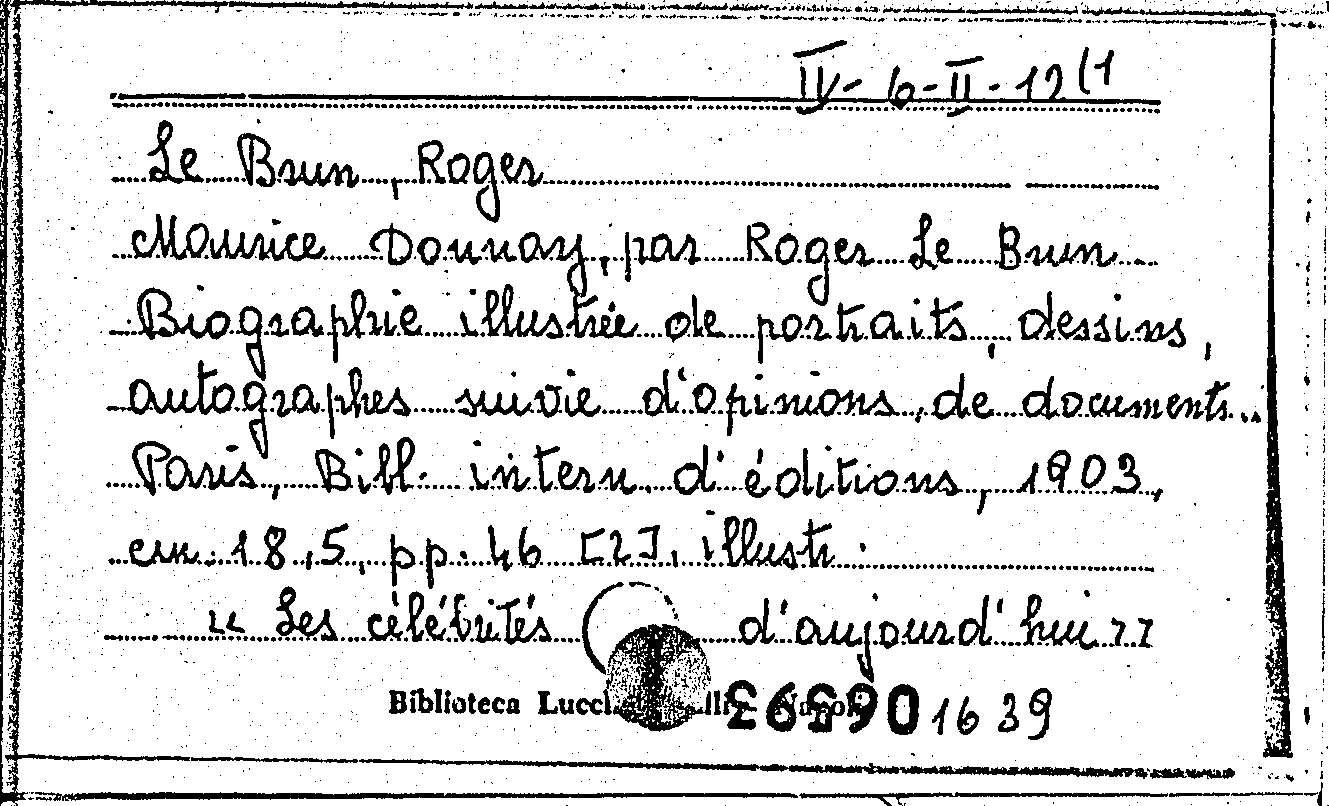 IV-6-II-12(1
Le Brun, Roger
Maurice Donnay, par Roger Le Brun
Biographie illustrée de portraits, dessins,
autographes suivie d'opinions, de documents..
Paris, Bibl. intern. d'éditions, 1903,
cm. 18,5, pp. 46 [2], illustr.
"Les célébrités d'aujourd'hui"
Biblioteca
1639